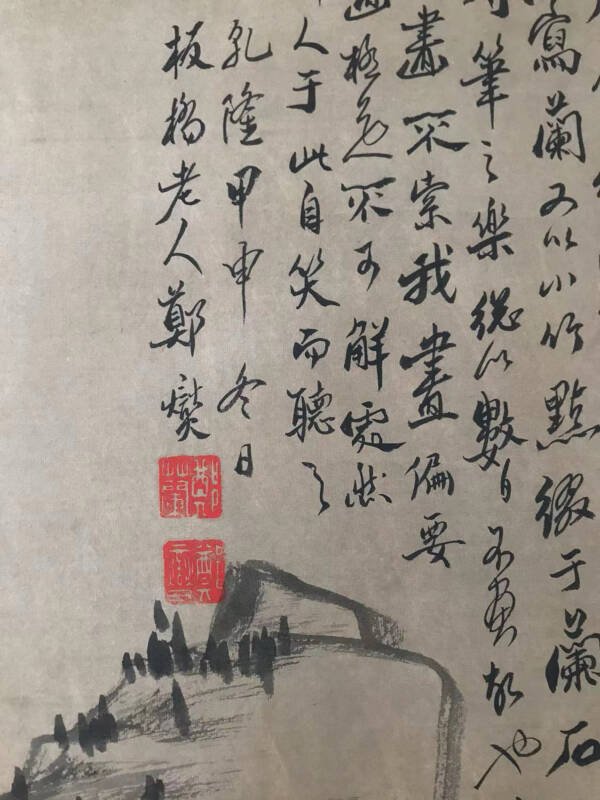 寫蘭又以小竹點綴于蘭石
筆之樂總以數日不畫故也
畫不索我畫偏要
極是不可解處然
人于此自笑而聽之
乾隆甲申冬日
板橋老人鄭燮